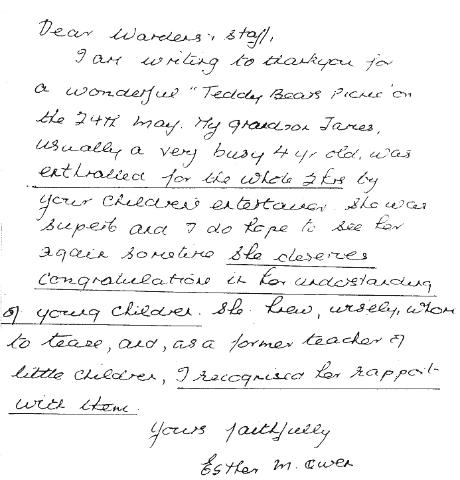 Dear Wardens, staff,
I am writing to thankyou for
a wonderful "Teddy Bears Picnic" on
the 24th May. My grandson James,
usually a very busy 4 yr old, was
enthralled for the whole 2 hrs by
your children's entertainer. She was
superb and I do hope to see her
again sometime She deserves
congratulations in her understanding
of young children. She knew, wisely, whom
to tease, and, as a former teacher of
little children, I recognised her rapport
with them.
Yours faithfully
Esther M. Owen